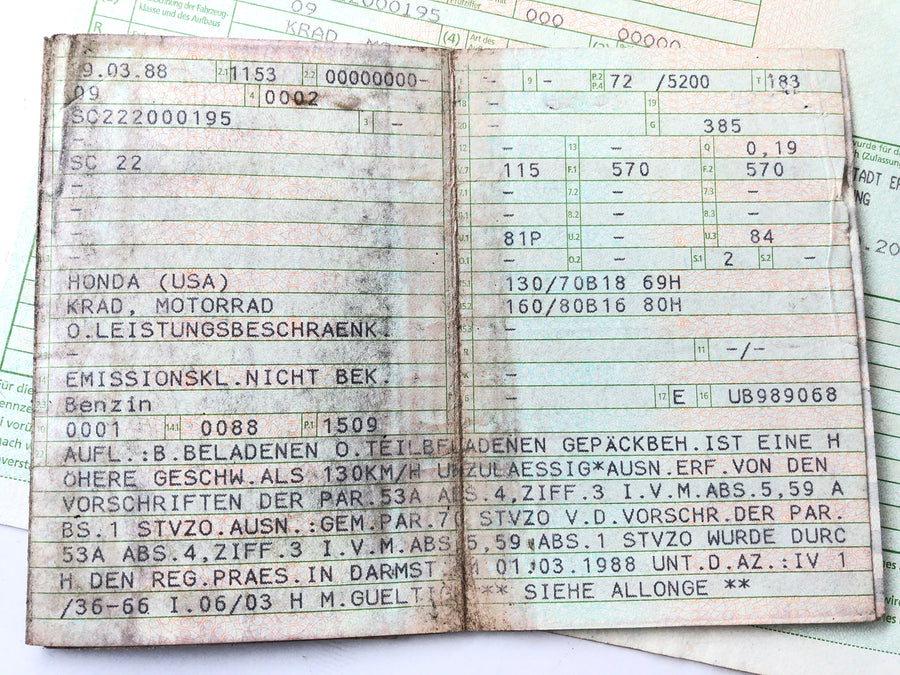 Bezeichnung der Fahrzeug-
klasse und des Aufbaus
09
222000195
Prüfziffer
000
R
KRAD
(4)
Art des
00000
9.03.88 2.1 1153 2.2 00000000-
09 4 0002
SC222000195 3 –
–
SC 22
–
–
–
–
HONDA (USA)
KRAD, MOTORRAD
O.LEISTUNGSBESCHRAENK.
–
EMISSIONSKL.NICHT BEK.
Benzin
0001 14.1 0088 P.1 1509
– 9 – P.2 P.4 72 /5200 T 183
18 – 19
20 – G 385
12 – 13 – Q 0,19
115 F.1 570 F.2 570
– 7.2 – 7.3 –
– 8.2 – 8.3 –
U.1 81P U.2 – U.3 84
– O.2 – S.1 2 S.2 –
130/70B18 69H
160/80B16 80H
–
R – 11 –/–
–
– 17 E 16 UB989068
AUFL.:B.BELADENEN O.TEILBELADENEN GEPÄCKBEH.IST EINE H
ÖHERE GESCHW.ALS 130KM/H UNZULAESSIG*AUSN.ERF.VON DEN
VORSCHRIFTEN DER PAR.53A ABS.4,ZIFF.3 I.V.M.ABS.5,59 A
BS.1 STVZO.AUSN.:GEM.PAR.70 STVZO V.D.VORSCHR.DER PAR.
53A ABS.4,ZIFF.3 I.V.M.ABS.5,59 ABS.1 STVZO WURDE DURC
H DEN REG.PRAES.IN DARMST. 01.03.1988 UNT.D.AZ.:IV 1
/36-66 I.06/03 H M.GUELTIG ** SIEHE ALLONGE **
wurde für da
(Zulassung
TADT
NG
.20
Für die
ennze
nach